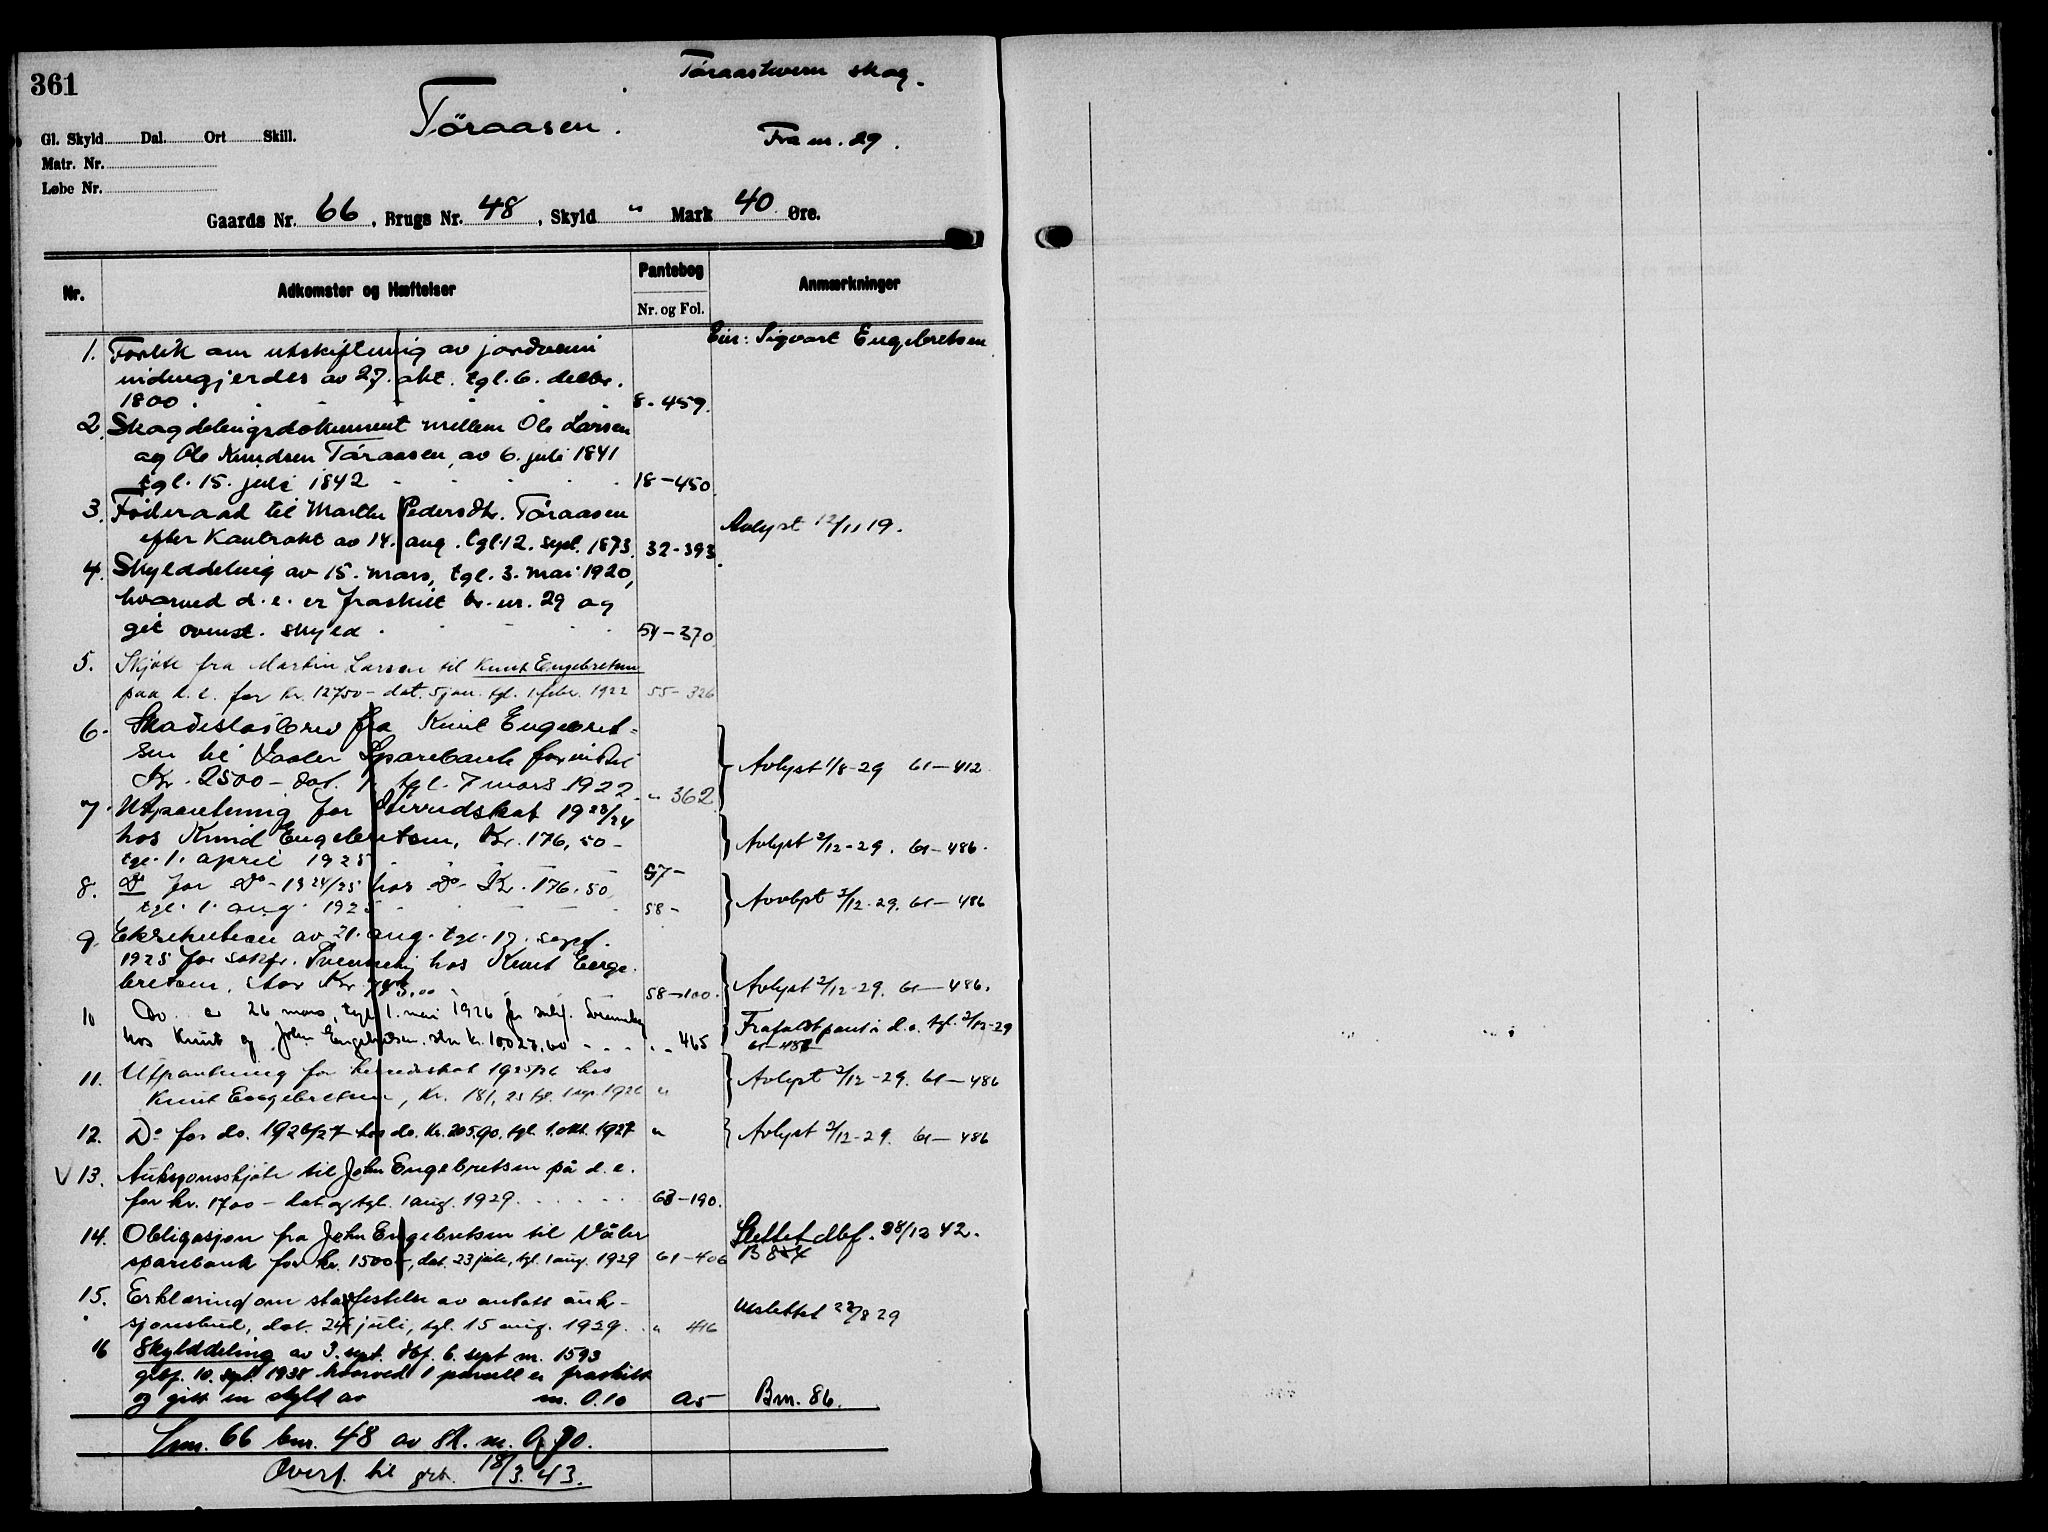 361
Tøraastuen skog.
Tøraasen.
Fra nr. 29.
Gl. Skyld Dal. Ort Skill.
Matr. Nr.
Løbe Nr.
Gaards Nr. 66, Brugs Nr. 48, Skyld " Mark 40 Øre.
Nr. Adkomster og Hæftelser Pantebog Anmærkninger
Nr. og Fol.
Eier: Sigvart Engebretsen
1. Forlik om utskiftning av jordveien
indengjerdes av 27. okt. tgl. 6. decbr.
1800. 8-459.
2. Skogdelingsdokument mellem Ole Larsen
og Ole Knudsen Tøraasen, av 6. juli 1841
tgl. 15. juli 1842 18-450.
3. Føderaad til Marthe Pedersdtr. Tøraasen Avlyst 12/11 19.
efter kontrakt av 14. aug. tgl. 12. sept. 1873. 32-393.
4. Skylddeling av 15. mars, tgl. 3. mai 1920,
hvorved d. e. er fraskilt br. nr. 29 og
git ovenst. skyld. 54-370
5. Skjøte fra Martin Larsen til Knut Engebretsen
paa d. e. for kr. 12750- dat. 5 jan. tgl. 1 febr. 1922 55-326
6. Skadesløsbrev fra Knut Engebret-
sen til Vaaler Sparebank for indtil
Kr. 2500- dat. tgl. 7 mars 1922. " 362 Avlyst 1/8-29 61-412
7. Utpantning for Herredskat 1923/24
hos Knud Engebretsen, Kr. 176,50- Avlyst 2/12-29. 61-486.
tgl. 1. april 1925 57-
8. Do for Do- 1924/25 hos Do- Kr. 176,50, Avlyst 2/12-29. 61-486
tgl. 1. aug. 1925 58-
9. Eksekution av 21. aug. tgl. 17. sept.
1925 for sakfr. Svenneby hos Knut Enge-
bretsen, stor Kr. 58-100. Avlyst 2/12-29. 61-486.
10 Do. av 26 mars, tgl. 1. mai 1926 for sakf. Svenneby Frafaldt pant i d. e. tgl. 2/12-29
hos Knut og John Engebretsen. stor kr. 10,027,00 " 465 61-486
11. Utpantning for herredskat 1925/26 hos Avlyst 2/12-29. 61-486
Knut Engebretsen, kr. 181,25 tgl. 1 sep. 1926 "
12. Do for do. 1926/27 hos do. Kr. 205.90. tgl. 1. okt. 1927 " Avlyst 2/12-29. 61-486
V 13. Auksjonsskjøte til John Engebretsen på d. e.
for kr. 1700- dat og tgl. 1 aug. 1929. 63-190.
14. Obligasjon fra John Engebretsen til Våler Slettet dbf. 28/12 42.
sparebank for kr. 1500-, dat. 23 juli, tgl. 1 aug. 1929 61-406 B 854
15. Erklæring om stadfestelse av antatt auk-
sjonsbud, dat. 24 juli, tgl. 15 aug. 1929. " 416 Utslettet 22/8 29
16 Skylddeling av 3. sept. dbf. 6. sept nr. 1593
gebf. 10. sept. 1938 hvorved 1 parsell er fraskilt
og gitt en skyld av m. 0.10 A5 Bnr. 86.
Gnr. 66 bnr. 48 av sk. m. 0,30.
Overf. til grb. 18/3. 43.